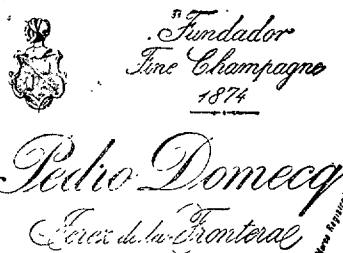 "Fundador
Fine Champagne
1874
Pedro Domecq
Jerez de la Frontera
Marca Registrada